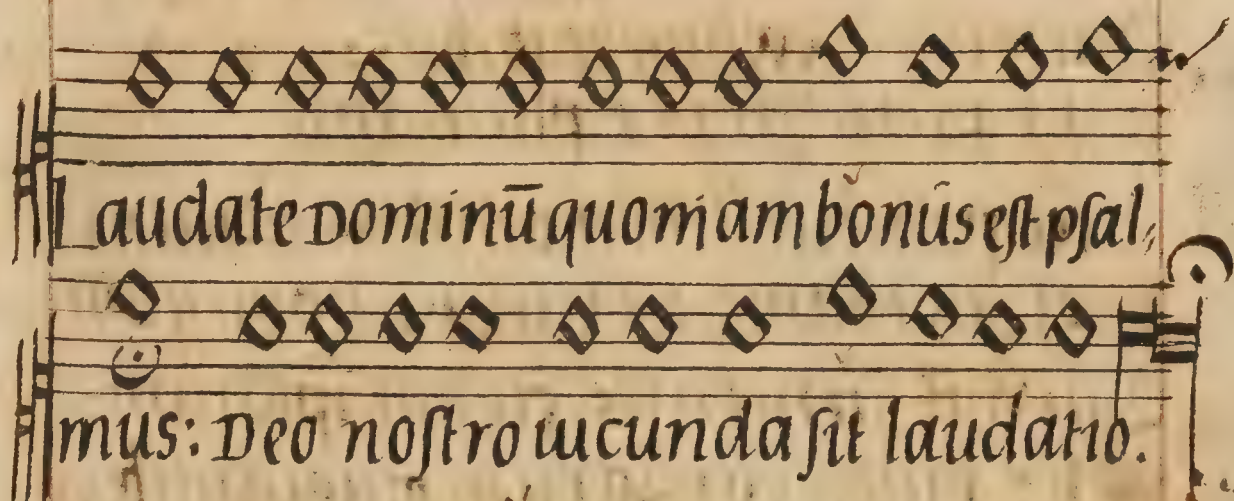 Laudate Dominū quoniam bonus est psal,
mus: Deo nostro iucunda sit laudatio.